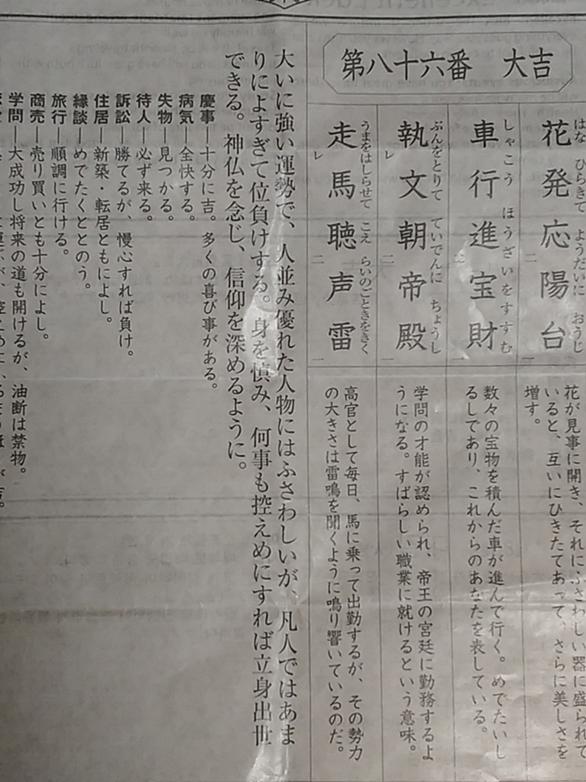 第八十六番 大吉
花発応陽台
はな ひらきて ようだいに おうじ
花が見事に開き、それにふさわしい器に盛られて
いると、互いにひきたてあって、さらに美しさを
増す。
車行進宝財
しゃこう ほうざいをすすむ
数々の宝物を積んだ車が進んで行く。めでたいし
るしであり、これからのあなたを表している。
執文朝帝殿
ぶんをとりて ていでんに ちょうし
学問の才能が認められ、帝王の宮廷に勤務するよ
うになる。すばらしい職業に就けるという意味。
走馬聴声雷
うまをはしらせて こえ らいのごときをきく
高官として毎日、馬に乗って出勤するが、その勢力
の大きさは雷鳴を聞くように鳴り響いているのだ。
大いに強い運勢で、人並み優れた人物にはふさわしいが、凡人ではあま
りによすぎて位負けする。身を慎み、何事も控えめにすれば立身出世
できる。神仏を念じ、信仰を深めるように。
慶事―十分に吉。多くの喜び事がある。
病気―全快する。
失物―見つかる。
待人―必ず来る。
訴訟―勝てるが、慢心すれば負け。
住居―新築・転居ともによし。
縁談―めでたくととのう。
旅行―順調に行ける。
商売―売り買いとも十分によし。
学問―大成功し将来の道も開けるが、油断は禁物。